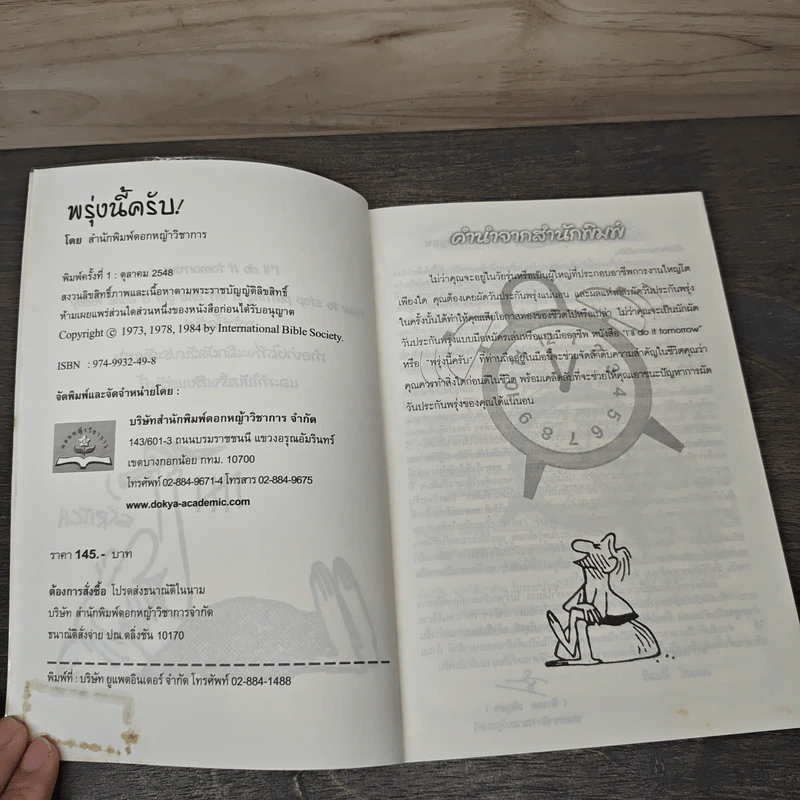 พรุ่งนี้ครับ!
โดย สำนักพิมพ์ดอกหญ้าวิชาการ
พิมพ์ครั้งที่ 1 : ตุลาคม 2548
สงวนลิขสิทธิ์ภาพและเนื้อหาตามพระราชบัญญัติลิขสิทธิ์
ห้ามเผยแพร่ส่วนใดส่วนหนึ่งของหนังสือก่อนได้รับอนุญาต
Copyright © 1973, 1978, 1984 by International Bible Society.
ISBN : 974-9932-49-8
จัดพิมพ์และจัดจำหน่ายโดย :
ดอกหญ้าวิชาการ
บริษัทสำนักพิมพ์ดอกหญ้าวิชาการ จำกัด
143/601-3 ถนนบรมราชชนนี แขวงอรุณอัมรินทร์
เขตบางกอกน้อย กทม. 10700
โทรศัพท์ 02-884-9671-4 โทรสาร 02-884-9675
www.dokya-academic.com
ราคา 145.- บาท
ต้องการสั่งซื้อ โปรดส่งธนาณัติในนาม
บริษัท สำนักพิมพ์ดอกหญ้าวิชาการจำกัด
ธนาณัติสั่งจ่าย ปณ.ตลิ่งชัน 10170
พิมพ์ที่ : บริษัท ยูแพดอินเตอร์ จำกัด โทรศัพท์ 02-884-1488
คำนำจากสำนักพิมพ์
ไม่ว่าคุณจะอยู่ในวัยรุ่นหรือเป็นผู้ใหญ่ที่ประกอบอาชีพการงานใหญ่โต
เพียงใด คุณต้องเคยผัดวันประกันพรุ่งแน่นอน และผลแห่งการผัดวันประกันพรุ่ง
ในครั้งนั้นได้ทำให้คุณเสียโอกาสทองของชีวิตไปหรือเปล่า ไม่ว่าคุณจะเป็นนักผัด
วันประกันพรุ่งแบบมือสมัครเล่นหรือแบบมืออาชีพ หนังสือ "I'll do it tomorrow"
หรือ "พรุ่งนี้ครับ" ที่ท่านถืออยู่ในมือนี้จะช่วยจัดลำดับความสำคัญในชีวิตคุณว่า
คุณควรทำสิ่งใดก่อนดีในชีวิต พร้อมเคล็ดลับที่จะช่วยให้คุณเอาชนะปัญหาการผัด
วันประกันพรุ่งของคุณได้แน่นอน